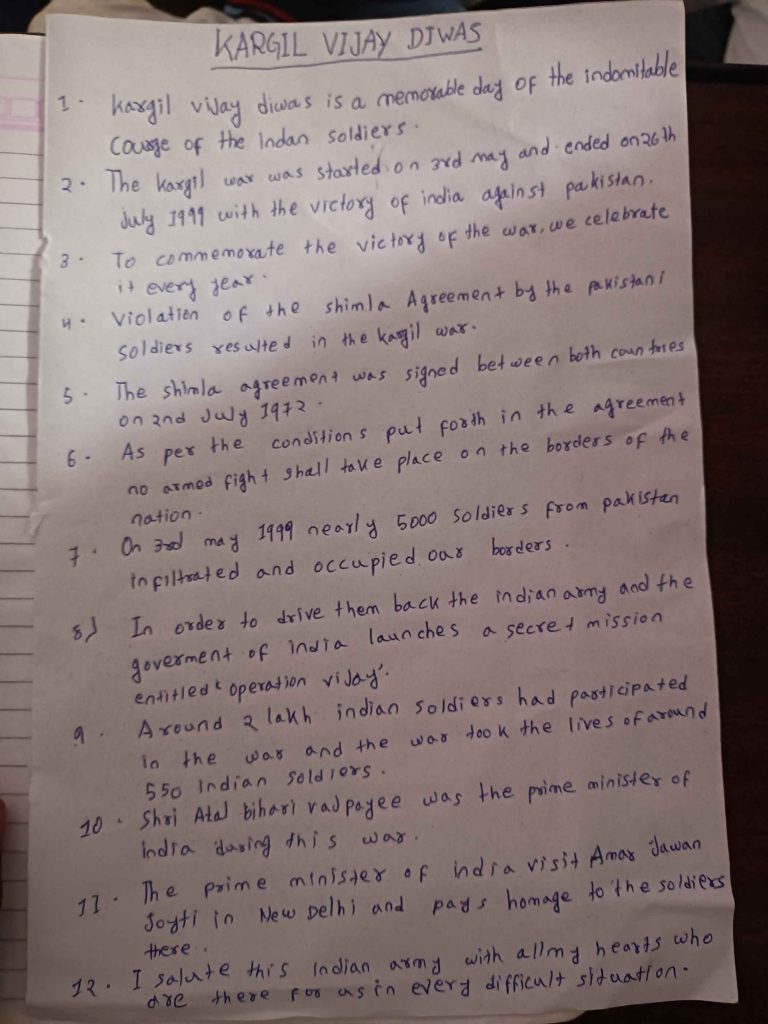 KARGIL VIJAY DIWAS
1. kargil vijay diwas is a memorable day of the indomitable
Courge of the Indan soldiers.
2. The kargil war was started on 3rd may and ended on 26th
July 1999 with the victory of india against pakistan.
3. To commemorate the victory of the war, we celebrate
it every year.
4. violation of the shimla Agreement by the pakistani
soldiers resulted in the kargil war.
5. The shimla agreement was signed between both countries
on 2nd July 1972.
6. As per the conditions put forth in the agreement
no armed fight shall take place on the borders of the
nation.
7. On 3rd may 1999 nearly 5000 soldiers from pakistan
infiltrated and occupied our borders.
8) In order to drive them back the indian army and the
goverment of india launches a secret mission
entitled 'operation vijay'.
9. Around 2 lakh indian soldiers had participated
in the war and the war took the lives of around
550 Indian soldiers.
10. Shri Atal bihari vajpayee was the prime minister of
india during this war.
11. The prime minister of india visit Amar Jawan
Joyti in New Delhi and pays homage to the soldiers
there.
12. I salute this indian army with all my hearts who
are there for us in every difficult situation.